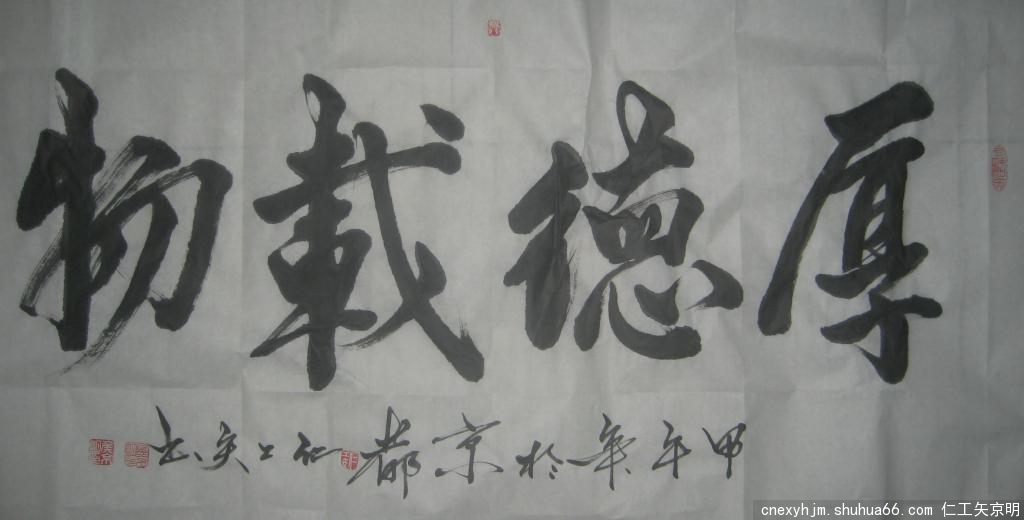 厚德載物
甲午年於京都仁工矢書
cnexyhjm.shuhua66.com 仁工矢京明